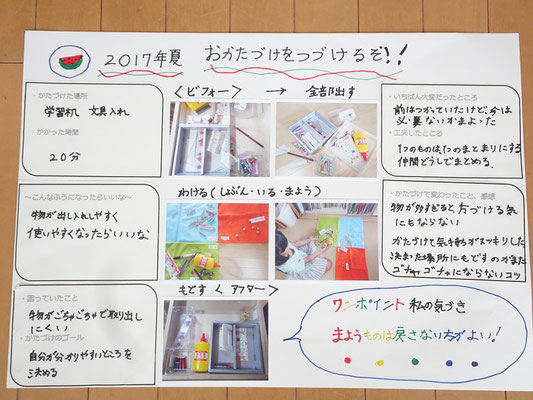 2017年夏 おかたづけをつづけるぞ!!
・かたづけた場所
学習机 文具入れ
・かかった時間
20分
〜こんなふうになったらいいな〜
物が出し入れしやすく
使いやすくなったらいいな
・困っていたこと
物がごちゃごちゃで取り出し
にくい
・かたづけのゴール
自分が分かりやすいところを
決める
<ビフォー> → 全部出す
わける(じぶん・いる・まよう)
もどす <アフター>
・いちばん大変だったところ
前はつかっていたけど、今は
必要ないかまよった
・工夫したところ
1つのものは1つのまとまりにする
仲間どうしでまとめる。
・かたづけて変わったこと、感想
物が多すぎると、片づける気
にもならない
かたづけて気持ちがスッキリした
決まった場所にもどすのがまた
ゴチャゴチャにならないコツ
ワンポイント 私の気づき
まようものは戻さない方がよい!